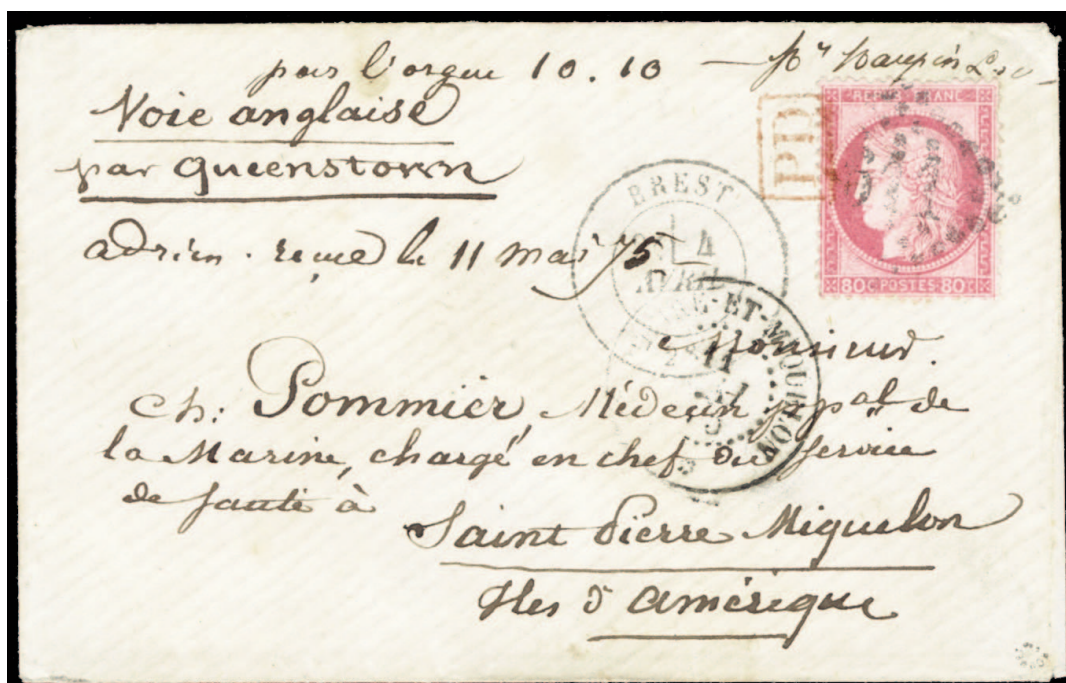 pour l'orgue 10.10 —
Voie anglaise
par Queenstown
adrien. reçue le 11 mai 75
PD
REPUB. FRANC.
80C POSTES 80C
BREST
4
AVRIL
RE-ET-MIQUELON
11
Monsieur
Ch: Pommier, Médecin ppal de
la Marine, chargé en chef du Service
de santé à
Saint Pierre Miquelon
Iles d'Amérique